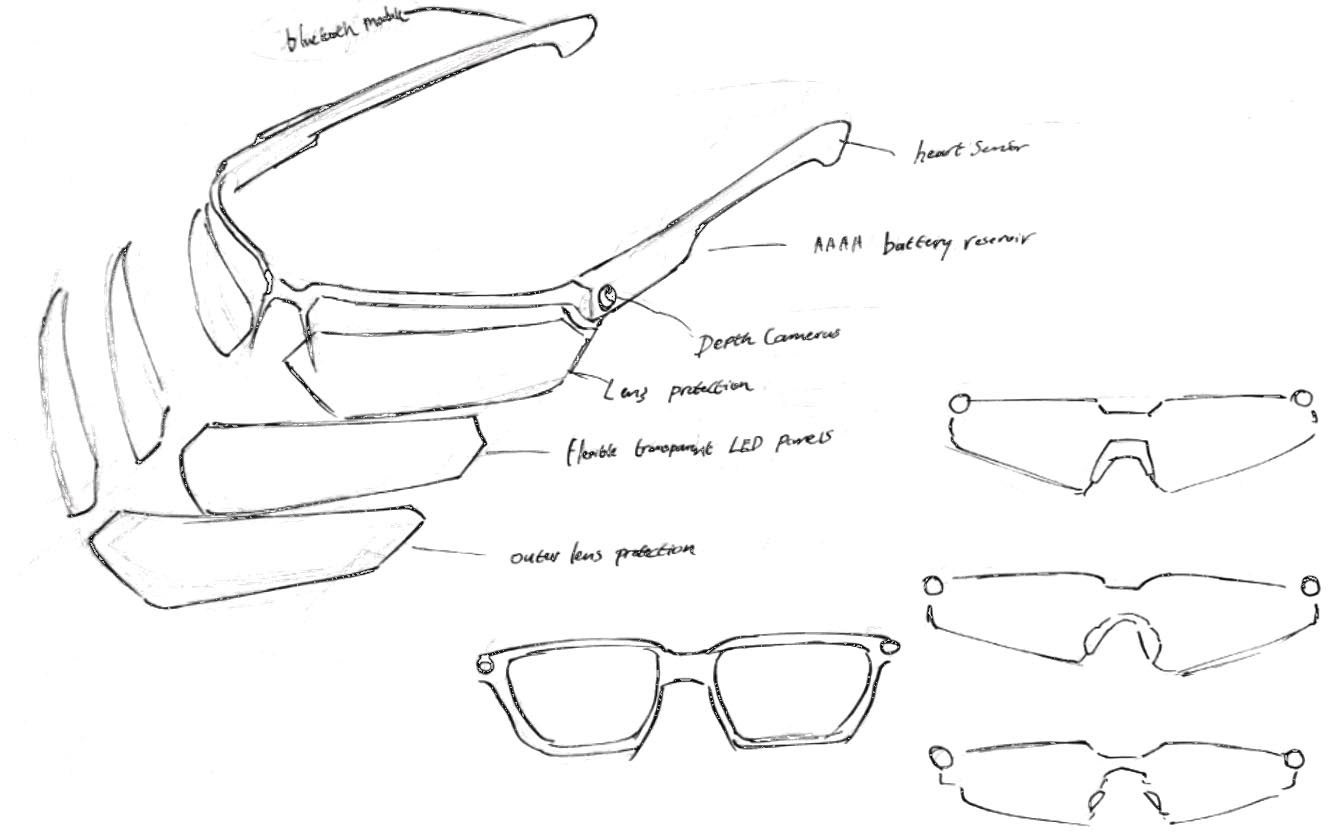 bluetooth module
heart Sensor
AAAA battery reservoir
Depth Cameras
Lens protection
flexible transparent LED panels
outer lens protection